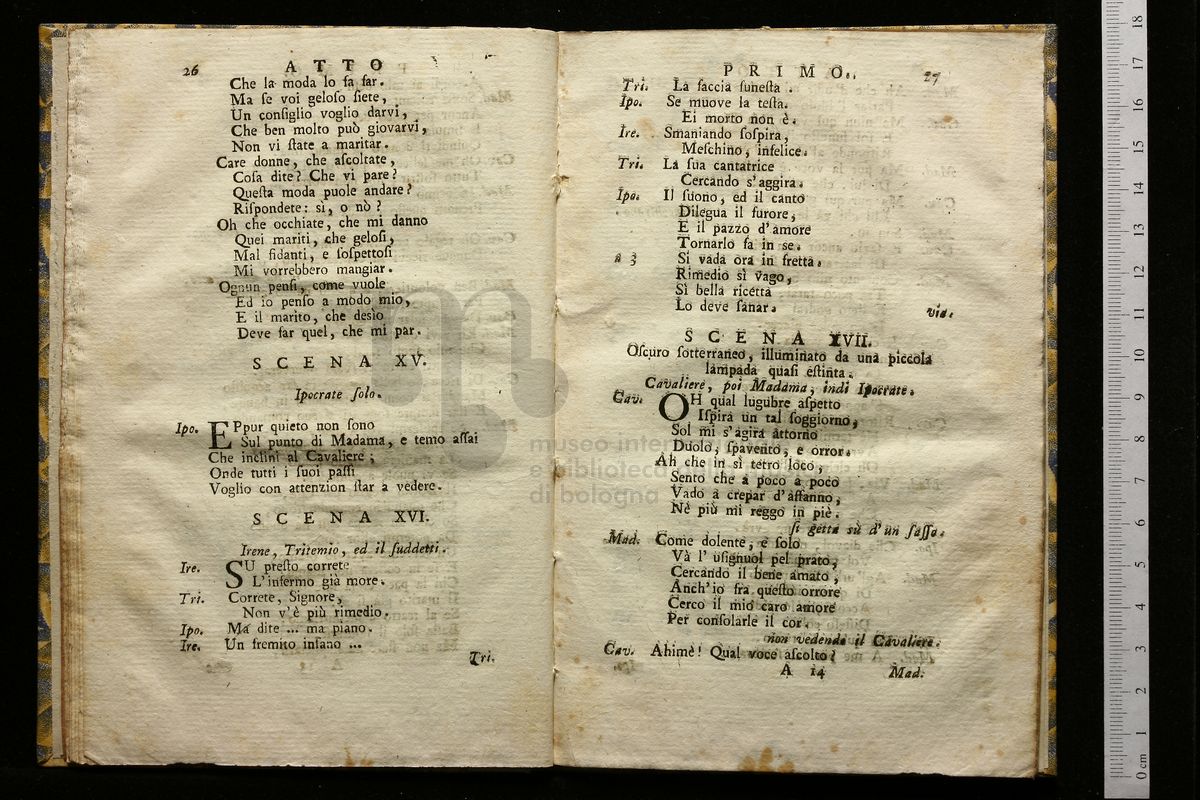 26
ATTO
Che la moda lo fa far.
Ma ſe voi geloſo ſiete,
Un conſiglio voglio darvi,
Che ben molto può giovarvi,
Non vi ſtate a maritar.
Care donne, che aſcoltate,
Coſa dite? Che vi pare?
Queſta moda puole andare?
Riſpondete: sì, o nò?
Oh che occhiate, che mi danno
Quei mariti, che geloſi,
Mal fidanti, e ſoſpettoſi
Mi vorrebbero mangiar.
Ognun penſi, come vuole
Ed io penſo a modo mio,
E il marito, che desìo
Deve far quel, che mi par.
SCENA XV.
Ipocrate ſolo.
Ipo. EPpur quieto non ſono
Sul punto di Madama, e temo aſſai
Che inclini al Cavaliere;
Onde tutti i ſuoi paſſi
Voglio con attenzion ſtar a vedere.
SCENA XVI.
Irene, Tritemio, ed il ſuddetti.
Ire. SU preſto correte
L'infermo già more.
Tri. Correte, Signore,
Non v'è più rimedio.
Ipo. Ma dite ... ma piano.
Ire. Un fremito inſano ...
Tri.
PRIMO.
27
Tri. La faccia funeſta.
Ipo. Se muove la teſta.
Ei morto non è.
Ire. Smaniando ſoſpira,
Meſchino, infelice.
Tri. La ſua cantatrice
Cercando s'aggira.
Ipo. Il ſuono, ed il canto
Dilegua il furore,
E il pazzo d'amore
Tornarlo fa in se.
a 3 Si vada ora in fretta.
Rimedio sì vago,
Sì bella ricetta
Lo deve ſanar.
via.
SCENA XVII.
Oſcuro ſotterraneo, illuminato da una piccola
lampada quaſi eſtinta.
Cavaliere, poi Madama, indi Ipocrate.
Cav. OH qual lugubre aſpetto
Iſpira un tal ſoggiorno,
Sol mi s'agira attorno
Duolo, ſpavento, e orror.
Ah che in sì tetro loco,
Sento che a poco a poco
Vado a crepar d'affanno,
Nè più mi reggo in piè.
ſi getta sù d'un ſaſſo.
Mad. Come dolente, e ſolo
Và l'uſignuol pel prato,
Cercando il bene amato,
Anch'io fra queſto orrore
Cerco il mio caro amore
Per conſolarle il cor.
non vedendo il Cavaliere.
Cav. Ahimè! Qual voce aſcolto?
A 14
Mad.
museo inter
e biblioteca
di bologna
0 cm 1 2 3 4 5 6 7 8 9 10 11 12 13 14 15 16 17 18